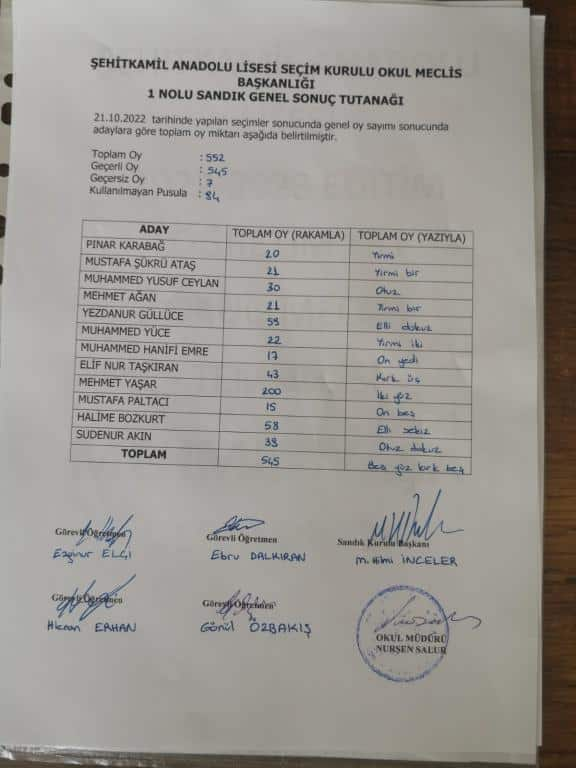 ŞEHİTKAMİL ANADOLU LİSESİ SEÇİM KURULU OKUL MECLİS
BAŞKANLIĞI
1 NOLU SANDIK GENEL SONUÇ TUTANAĞI
21.10.2022 tarihinde yapılan seçimler sonucunda genel oy sayımı sonucunda
adaylara göre toplam oy miktarı aşağıda belirtilmiştir.
Toplam Oy : 552
Geçerli Oy : 545
Geçersiz Oy : 7
Kullanılmayan Pusula : 84
ADAY TOPLAM OY (RAKAMLA) TOPLAM OY (YAZIYLA)
PINAR KARABAĞ 20 Yirmi
MUSTAFA ŞÜKRÜ ATAŞ 21 Yirmi bir
MUHAMMED YUSUF CEYLAN 30 Otuz
MEHMET AĞAN 21 Yirmi bir
YEZDANUR GÜLLÜCE 59 Elli dokuz
MUHAMMED YÜCE 22 Yirmi iki
MUHAMMED HANİFİ EMRE 17 On yedi
ELİF NUR TAŞKIRAN 43 Kırk üç
MEHMET YAŞAR 200 İki yüz
MUSTAFA PALTACI 15 On beş
HALİME BOZKURT 58 Elli sekiz
SUDENUR AKIN 39 Otuz dokuz
TOPLAM 545 Beş yüz kırk beş
Görevli Öğretmen Görevli Öğretmen Sandık Kurulu Başkanı
Ezginur ELÇİ Ebru DALKIRAN M. Hilmi İNCELER
Görevli Öğretmen Görevli Öğretmen
Hicran ERHAN Gönül ÖZBAKIŞ
OKUL MÜDÜRÜ
NURŞEN SALUR